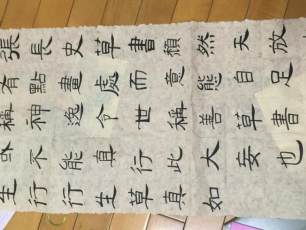 張長史草書頹然天放
有點畫處而意態自足
稱神逸今世稱善草書
不能真行此大妄也
生行行生草真如